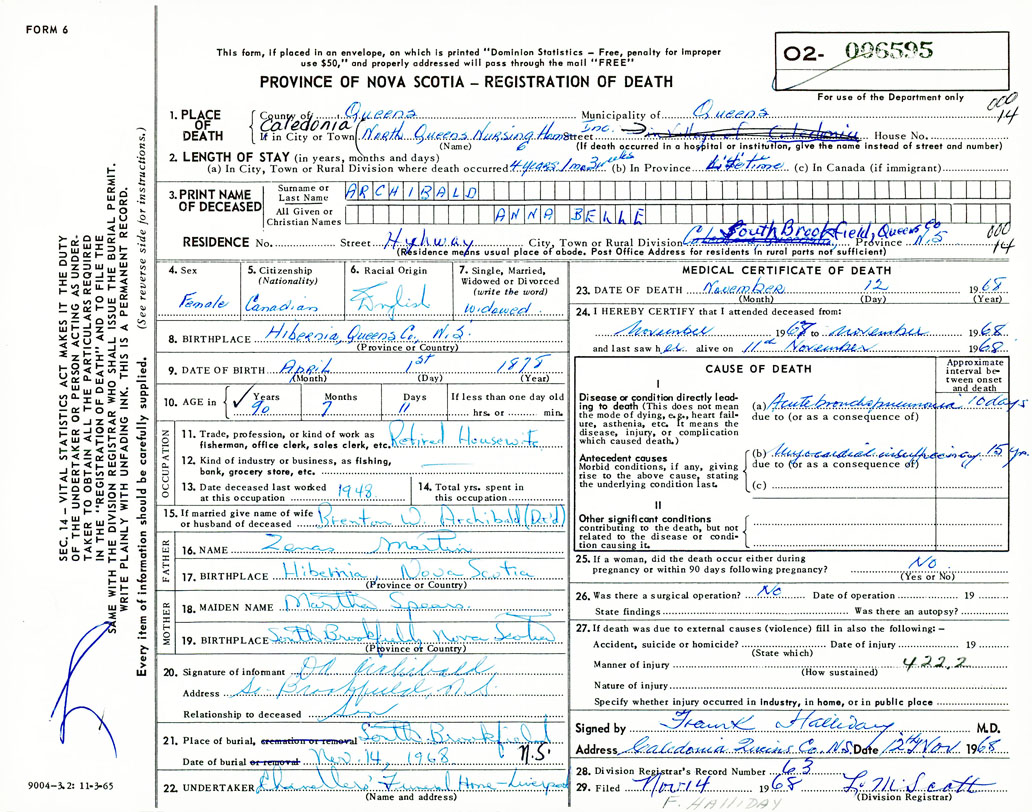 FORM 6
This form, if placed in an envelope, on which is printed "Dominion Statistics – Free, penalty for improper
use $50," and properly addressed will pass through the mail "FREE"
PROVINCE OF NOVA SCOTIA – REGISTRATION OF DEATH
02- 006595
For use of the Department only
000
14
1. PLACE OF DEATH
County of Queens Municipality of Queens
Caledonia
If in City or Town North Queens Nursing Home Inc. Street Village of Caledonia House No.
(Name) (If death occurred in a hospital or institution, give the name instead of street and number)
6
2. LENGTH OF STAY (in years, months and days)
(a) In City, Town or Rural Division where death occurred 4 years 1 mo 3 weeks (b) In Province Lifetime (c) In Canada (if immigrant)
3. PRINT NAME OF DECEASED
Surname or Last Name ARCHIBALD
All Given or Christian Names ANNA BELLE
RESIDENCE No. Street Hyhway City, Town or Rural Division South Brookfield, Queens Co Province N.S
000
14
(Residence means usual place of abode. Post Office Address for residents in rural parts not sufficient)
4. Sex
Female
5. Citizenship
(Nationality)
Canadian
6. Racial Origin
English
7. Single, Married,
Widowed or Divorced
(write the word)
Widowed
8. BIRTHPLACE Hibernia, Queens Co., N.S.
(Province or Country)
9. DATE OF BIRTH April 1st 1878
(Month) (Day) (Year)
10. AGE in Years Months Days If less than one day old
✓ 90 7 11 hrs. or min.
OCCUPATION
11. Trade, profession, or kind of work as
fisherman, office clerk, sales clerk, etc. Retired Housewife
12. Kind of industry or business, as fishing,
bank, grocery store, etc.
13. Date deceased last worked
at this occupation 1948
14. Total yrs. spent in
this occupation
15. If married give name of wife
or husband of deceased Brenton W. Archibald (Dec'd)
FATHER
16. NAME Zenas Martin
17. BIRTHPLACE Hibernia, Nova Scotia
(Province or Country)
MOTHER
18. MAIDEN NAME Martha Spears
19. BIRTHPLACE South Brookfield Nova Scotia
(Province or Country)
20. Signature of informant Archibald
Address So. Brookfield, N.S.
Relationship to deceased Son
21. Place of burial, cremation or removal South Brookfield
N.S.
Date of burial or removal Nov. 14, 1968
22. UNDERTAKER Chandlers' Funeral Home - Liverpool
(Name and address)
MEDICAL CERTIFICATE OF DEATH
23. DATE OF DEATH November 12 1968
(Month) (Day) (Year)
24. I HEREBY CERTIFY that I attended deceased from:
November 1967 to November 1968
and last saw her alive on 11th November 1968
CAUSE OF DEATH
Approximate interval between onset and death
I
Disease or condition directly leading to death (This does not mean the mode of dying, e.g., heart failure, asthenia, etc. It means the disease, injury, or complication which caused death.)
(a) Acute bronchopneumonia 10 days
due to (or as a consequence of)
Antecedent causes
Morbid conditions, if any, giving rise to the above cause, stating the underlying condition last.
(b) Myocardial insufficiency 15 yrs.
due to (or as a consequence of)
(c)
II
Other significant conditions
contributing to the death, but not related to the disease or condition causing it.
25. If a woman, did the death occur either during
pregnancy or within 90 days following pregnancy? No
(Yes or No)
26. Was there a surgical operation? No Date of operation 19
State findings Was there an autopsy?
27. If death was due to external causes (violence) fill in also the following: –
Accident, suicide or homicide? Date of injury 19
(State which)
Manner of injury 422.2
(How sustained)
Nature of injury
Specify whether injury occurred in industry, in home, or in public place
Signed by Frank Halliday M.D.
Address Caledonia Queens Co. N.S. Date 12th Nov. 1968
28. Division Registrar's Record Number 63
29. Filed Nov 14 1968 L. M. Scott
(Division Registrar)
F. HALLIDAY
SEC. 14 – VITAL STATISTICS ACT MAKES IT THE DUTY
OF THE UNDERTAKER OR PERSON ACTING AS UNDERTAKER
TO OBTAIN ALL THE PARTICULARS REQUIRED
IN THE "REGISTRATION OF DEATH" AND TO FILE THE
SAME WITH THE DIVISION REGISTRAR WHO SHALL ISSUE THE BURIAL PERMIT.
WRITE PLAINLY WITH UNFADING INK. THIS IS A PERMANENT RECORD.
Every item of information should be carefully supplied. (See reverse side for instructions.)
9004-3.2: 11-3-65